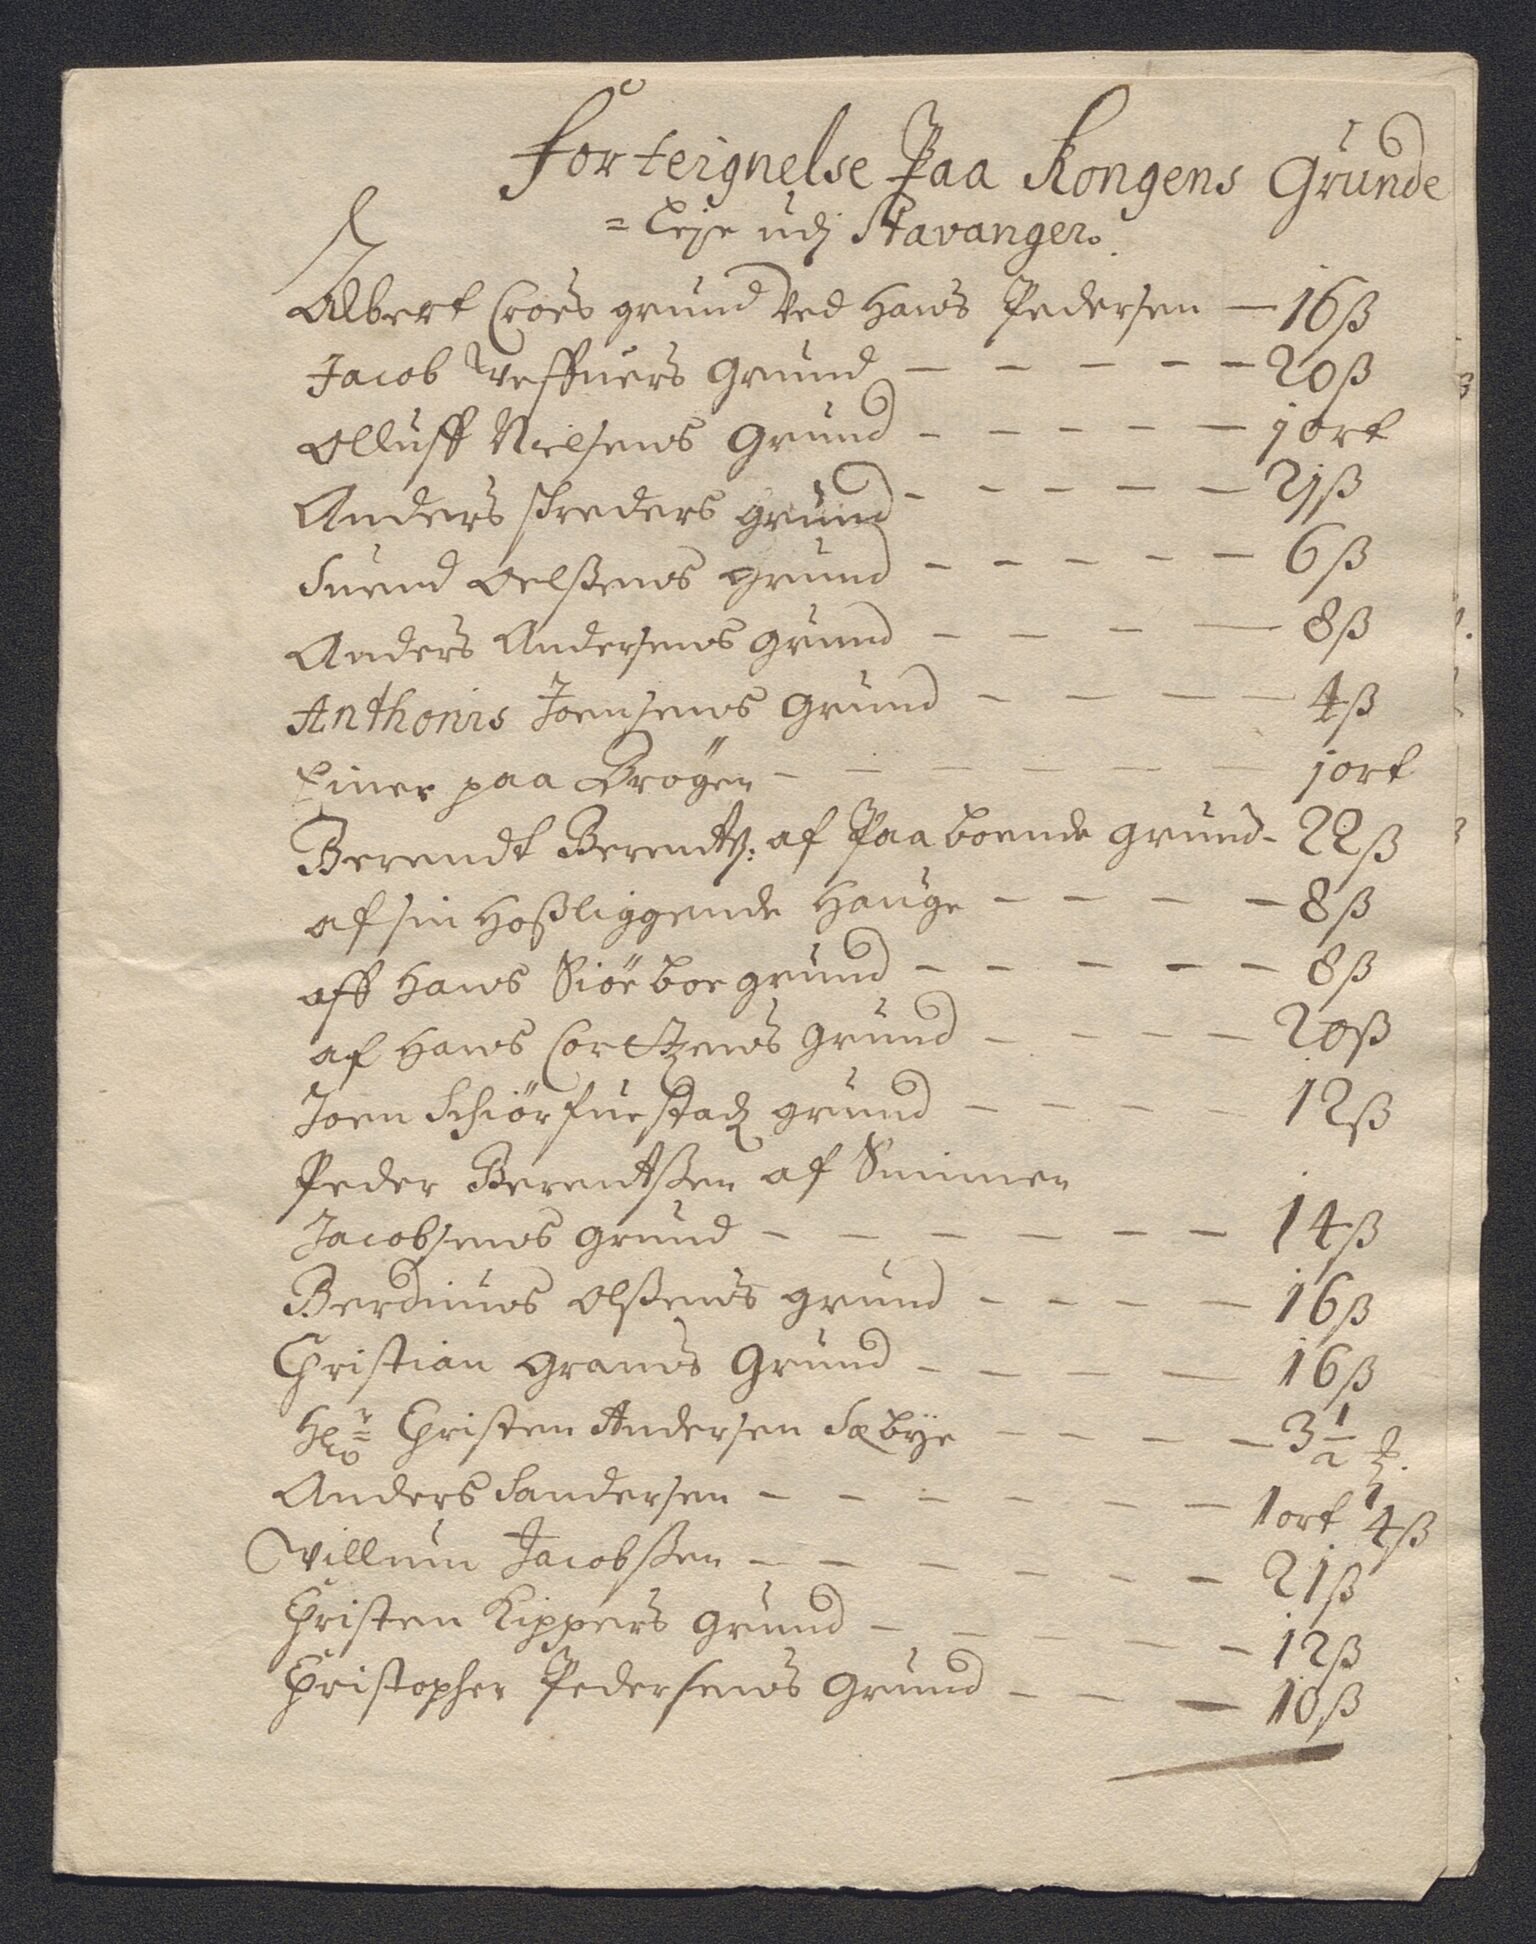 Forteignelse Paa Kongens Grunde
= Leje udj Stavanger.
Albert Croes grund ved Hans Pedersen — 16 ß
Jacob Veffuers Grund — — — — — 20 ß
Olluff Nielsens Grund — — — — — 1 ort
Anders skreders Grund — — — — — 21 ß
Suend Oelßens grund — — — — — 6 ß
Anders Andersens grund — — — — 8 ß
Anthonis Joensens Grund — — — — 4 ß
Einer paa Brögen — — — — — — 1 ort
Berendt Berentß: af Paaboende grund - 22 ß
af sin Hoßliggende Hauge — — — — 8 ß
aff Hans Siöeboe grund — — — — — 8 ß
af Hans Cortzens Grund — — — — 20 ß
Joen Schiörfuestadz grund — — — — 12 ß
Peder Berentßen af
Jacobsens grund — — — — — — 14 ß
Olßens grund — — — — 16 ß
Christian Grans Grund — — — — 16 ß
Christen Andersen Sæbÿe — — — — 3 1/2
Anders Sandersen — — — — — — 1 ort 4 ß
Villum Jacobßen — — — — — — 21 ß
Christen Kippers Grund — — — — — 12 ß
Christopher Pedersens Grund — — — 10 ß